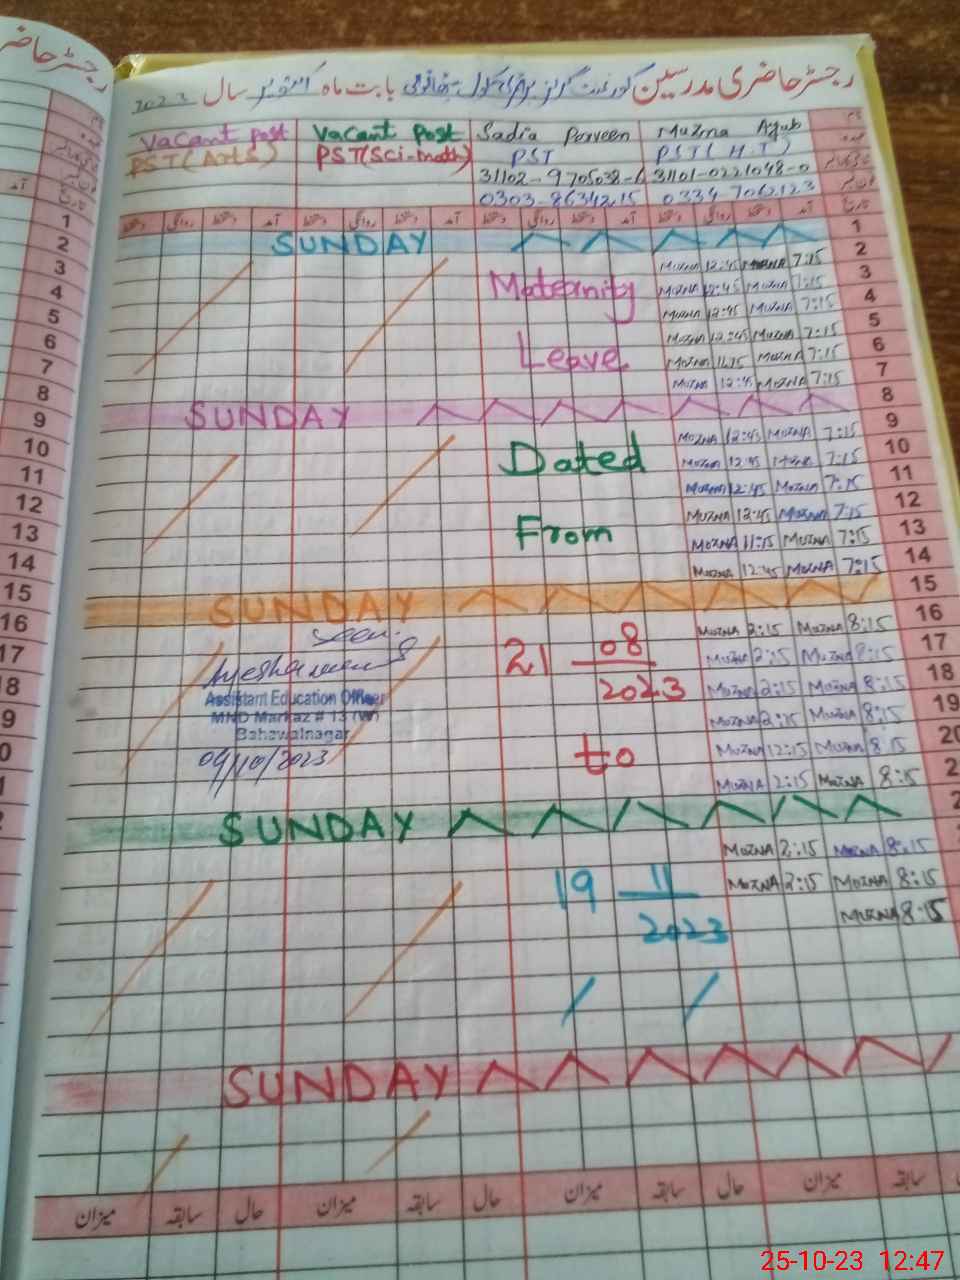 رجسٹر حاضری مدرسین گورنمنٹ گرلز پرائمری سکول بابت ماہ اکتوبر سال 2023
رجسٹر حاضر
Vacant post Vacant Post Sadia Parveen Muzna Ayub
PST (Arts) PST(Sci-math) PST PST (H.T)
31102-9705038-6 31101-0221048-0
0303-8634215 0334 7062123
روانگی دستخط آمد روانگی دستخط آمد روانگی دستخط آمد روانگی دستخط آمد
1 SUNDAY 1
2 MUZNA 12:45 MUZNA 7:15 2
3 Maternity MUZNA 12:45 MUZNA 7:15 3
4 MUZNA 12:45 MUZNA 7:15 4
5 MUZNA 12:45 MUZNA 7:15 5
6 Leave MUZNA 11:15 MUZNA 7:15 6
7 MUZNA 12:45 MUZNA 7:15 7
8 SUNDAY 8
9 MUZNA 12:45 MUZNA 7:15 9
10 Dated MUZNA 12:45 MUZNA 7:15 10
11 MUZNA 12:45 MUZNA 7:15 11
12 MUZNA 12:45 MUZNA 7:15 12
13 From MUZNA 11:15 MUZNA 7:15 13
14 MUZNA 12:45 MUZNA 7:15 14
15 SUNDAY 15
16 Seen. MUZNA 2:15 MUZNA 8:15 16
17 21 08 MUZNA 2:15 MUZNA 8:15 17
18 Assistant Education Officer 2023 MUZNA 2:15 MUZNA 8:15 18
19 MND Markaz # 13 (W) MUZNA 2:15 MUZNA 8:15 19
Bahawalnagar
20 04/10/2023 to MUZNA 12:15 MUZNA 8:15 20
MUZNA 2:15 MUZNA 8:15
SUNDAY
MUZNA 2:15 MUZNA 8:15
19 11 MUZNA 2:15 MUZNA 8:15
2023 MUZNA 8:15
SUNDAY
میزان سابقہ حال میزان سابقہ حال میزان سابقہ حال میزان سابقہ
25-10-23 12:47